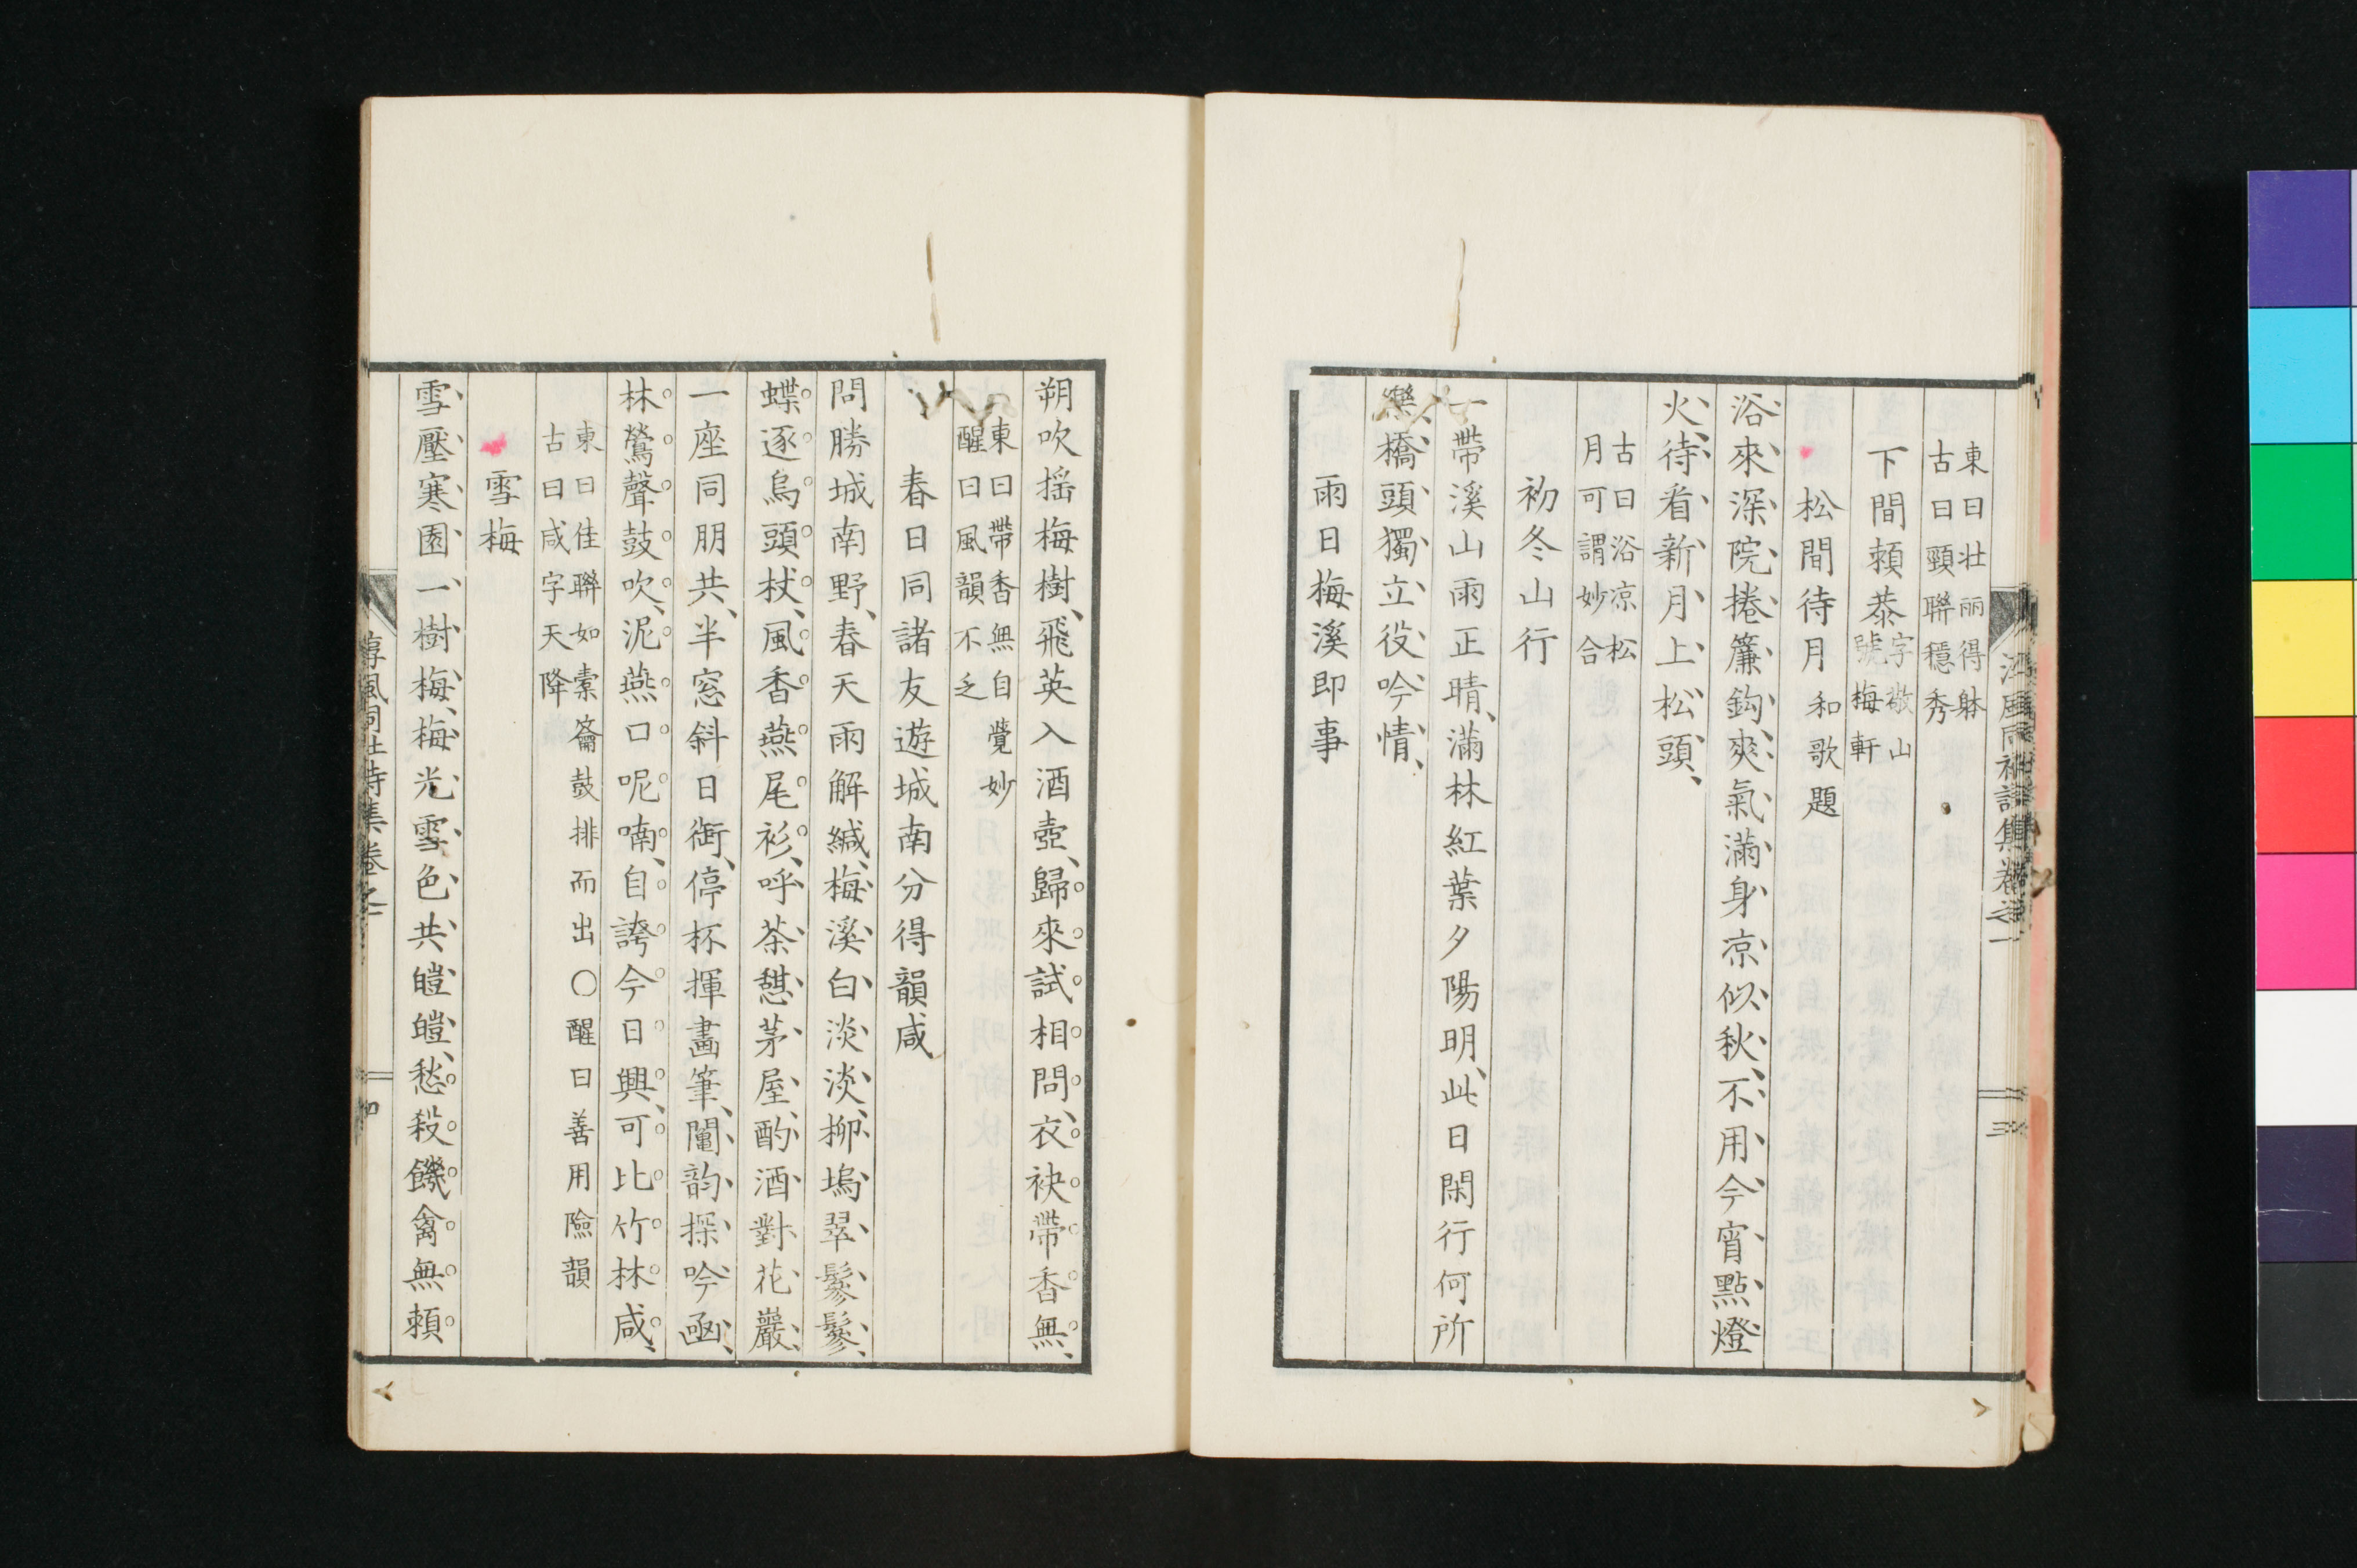 東曰壮丽得躰
古曰頸聯穩秀
下間頼恭字敬山
號梅軒
松間待月和歌題
浴來深院捲簾鈎爽氣滿身凉似秋不用今宵點燈
火待看新月上松頭
古曰浴凉松
月可謂妙合
初冬山行
一帶溪山雨正晴滿林紅葉夕陽明此日閑行何所
樂橋頭獨立役吟情
雨日梅溪即事
朔吹揺梅樹飛英入酒壺歸來試相問衣袂帶香無
東曰帶香無自覺妙
醒曰風韻不乏
春日同諸友遊城南分得韻咸
問勝城南野春天雨解緘梅溪白淡淡柳塢翠鬖鬖
蝶逐烏頭杖風香燕尾衫呼茶憇茅屋酌酒對花巖
一座同朋共半窓斜日銜停杯揮畫筆鬮韵探吟凾
林鶯聲鼓吹泥燕口呢喃自誇今日興可比竹林咸
東曰佳聯如橐籥鼓排而出○醒曰善用險韻
古曰咸字天降
雪梅
雪壓寒園一樹梅梅光雪色共皚皚愁殺饑禽無頼
淳風同社詩集卷之一